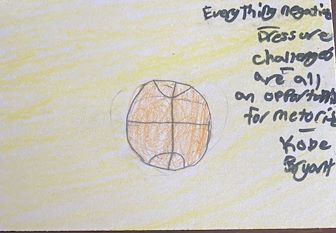 Everything negative
Pressure
challenges
are all
an opportunity
for me to rise
Kobe
Bryant